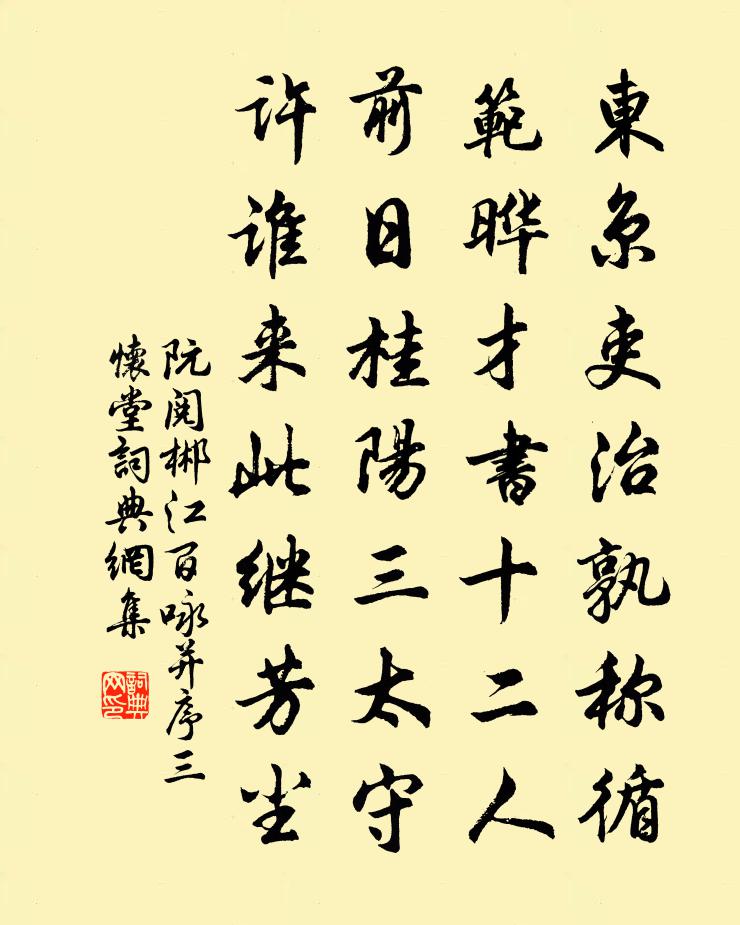 東京吏治孰称循
範曄才書十二人
前日桂陽三太守
許谁来此继芳尘
阮閱郴江百咏并序三
懷堂詞典網集
詞典网印